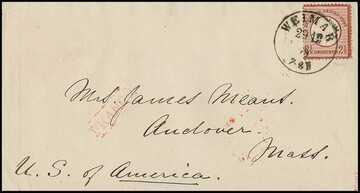 WEIMAR
29 12
7-8N
2½ 2½
FRAN
Mrs. James Means.
Andover.
Mass.
U. S. of America.